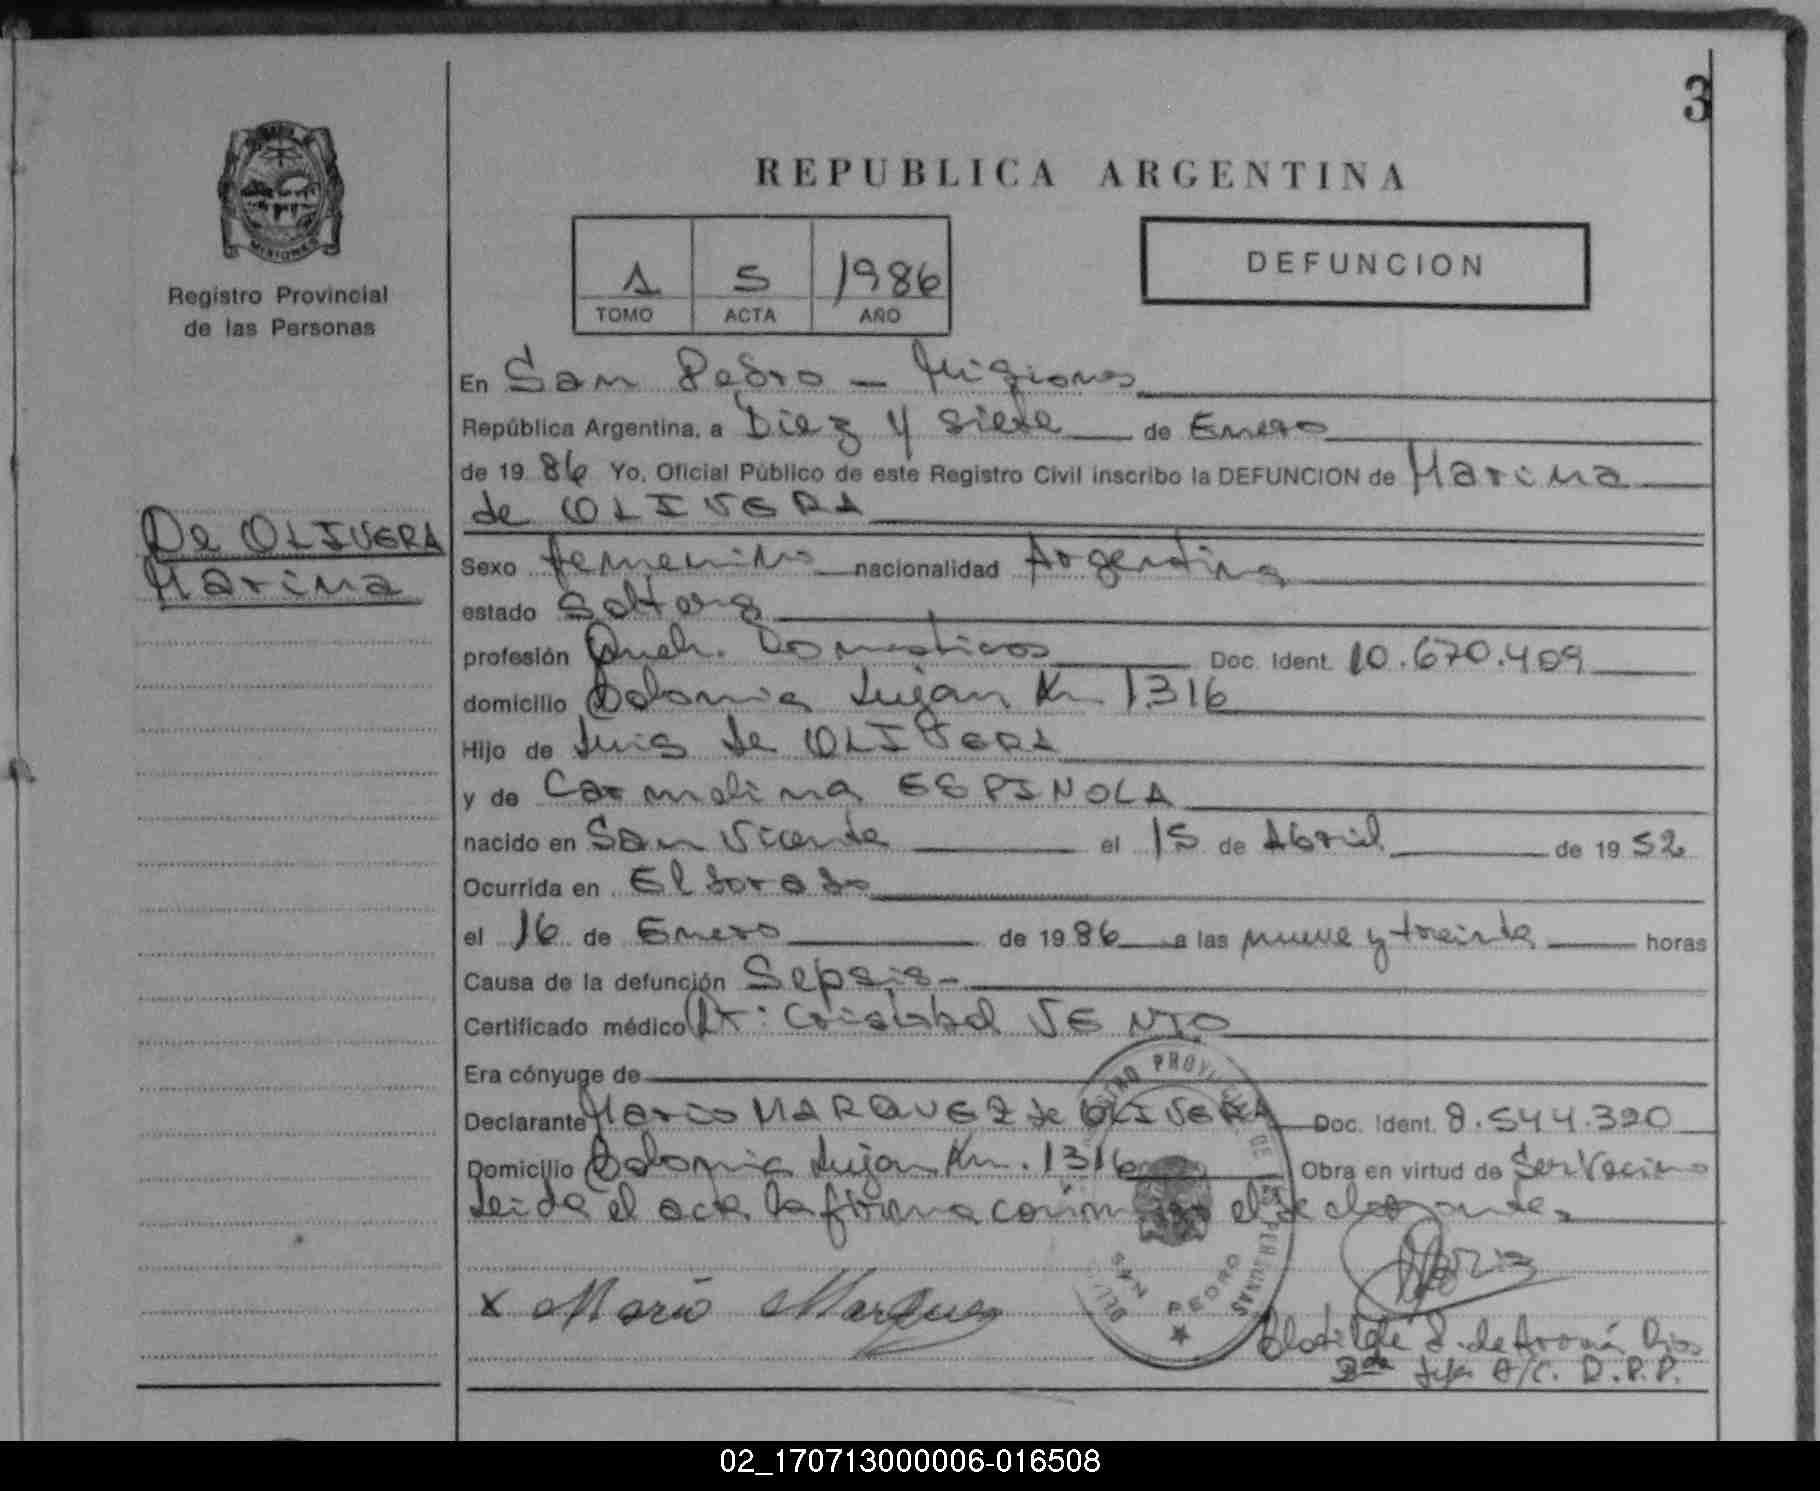 3
REPUBLICA ARGENTINA
MISIONES
Registro Provincial
de las Personas
1 5 1986
TOMO ACTA AÑO
DEFUNCION
De OLIVERA
Marina
En San Pedro - Misiones
República Argentina, a Diez y siete de Enero
de 19 86 Yo, Oficial Público de este Registro Civil inscribo la DEFUNCION de Marina
de OLIVERA
Sexo femenino nacionalidad Argentina
estado Soltera
profesión Queh. Domesticos Doc. Ident. 10.670.409
domicilio Colonia Lujan Km 1316
Hijo de Luis de OLIVERA
y de Carmelina ESPINOLA
nacido en San Vicente el 15 de Abril de 19 52
Ocurrida en Eldorado
el 16 de Enero de 19 86 a las nueve y treinta horas
Causa de la defunción Sepsis-
Certificado médico Dr: Cristobal VENTO
Era cónyuge de
Declarante Mario MARQUEZ de OLIVERA Doc. Ident. 8.544.320
Domicilio Colonia Lujan Km. 1316 Obra en virtud de Ser Vecino
Leida el acta la firma conmigo el declarante
x Mario Marques
SAN PEDRO
Clotilde
2da Jefe A/C. R.P.P.
02_170713000006-016508